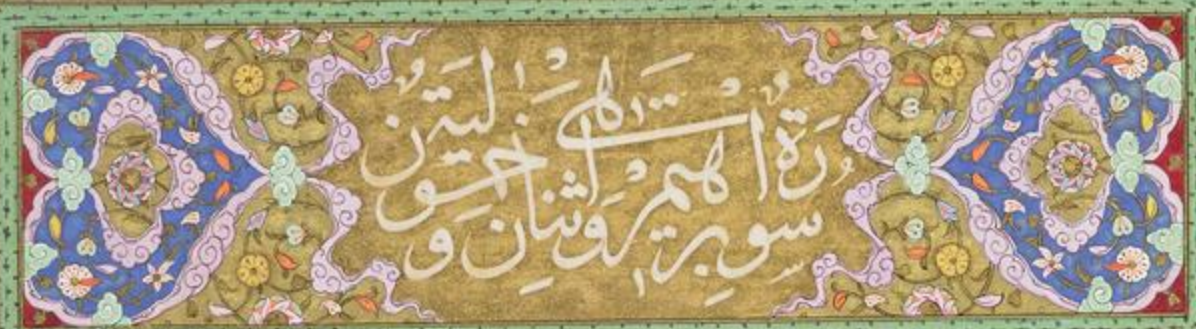 سورة ابرهيم وهى اثنان وخمسون اية